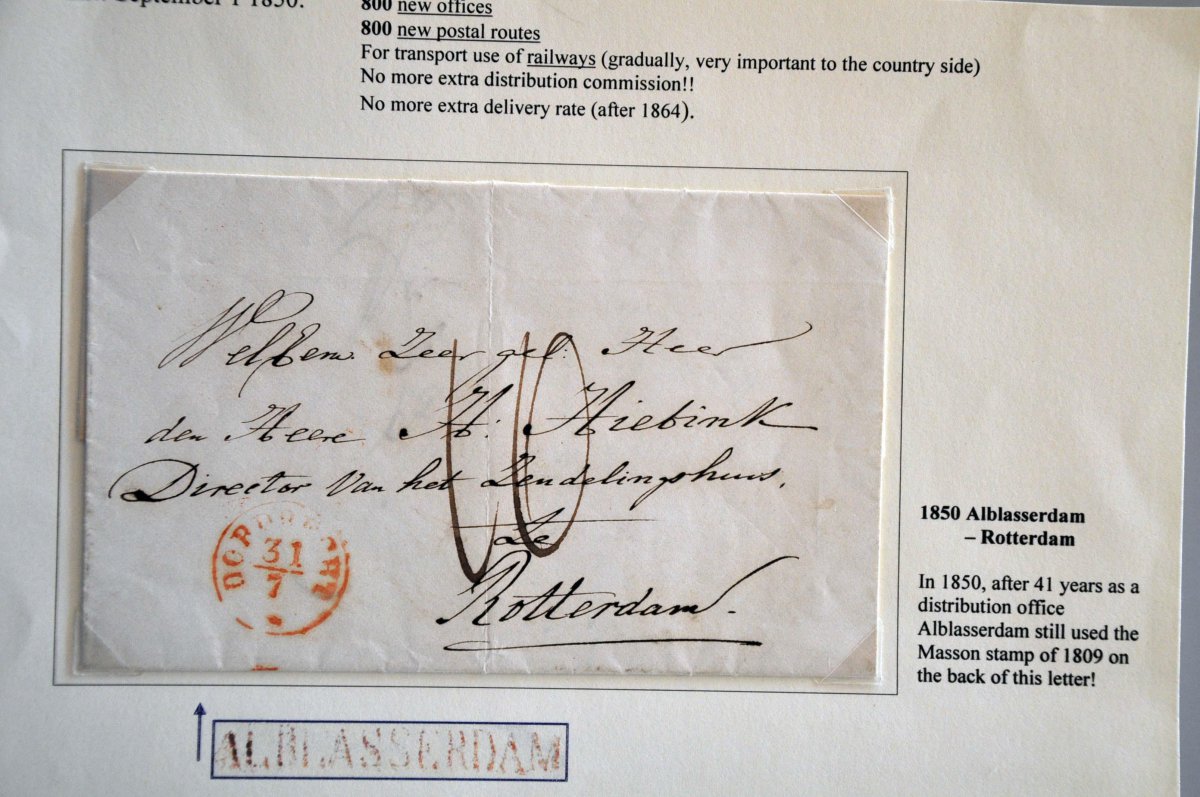 September 1 1850.
800 new offices
800 new postal routes
For transport use of railways (gradually, very important to the country side)
No more extra distribution commission!!
No more extra delivery rate (after 1864).
Zeer gel: Heer
den Heere H: Hiebink
Director Van het Zendelingshuis,
te
Rotterdam.
DORDRECHT
31
7
1850 Alblasserdam
– Rotterdam
In 1850, after 41 years as a
distribution office
Alblasserdam still used the
Masson stamp of 1809 on
the back of this letter!
ALBLASSERDAM